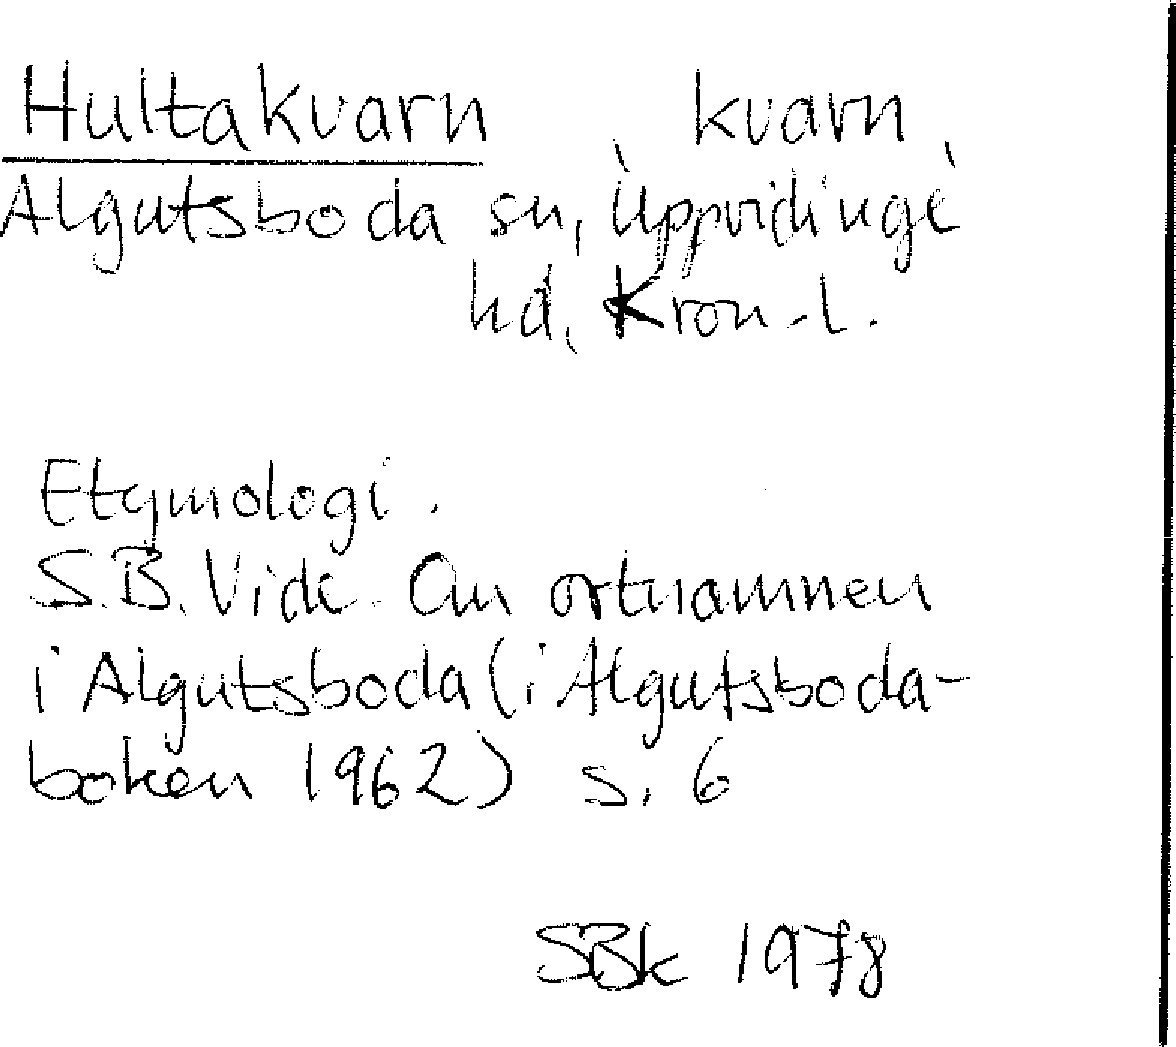 Hultakvarn kvarn,
Algutsboda sn, Uppvidinge
hd, Kron.l.
Etymologi.
S.B. Vide. Om ortnamnen
i Algutsboda (i Algutsboda-
boken 1962) s. 6
SBk 1978